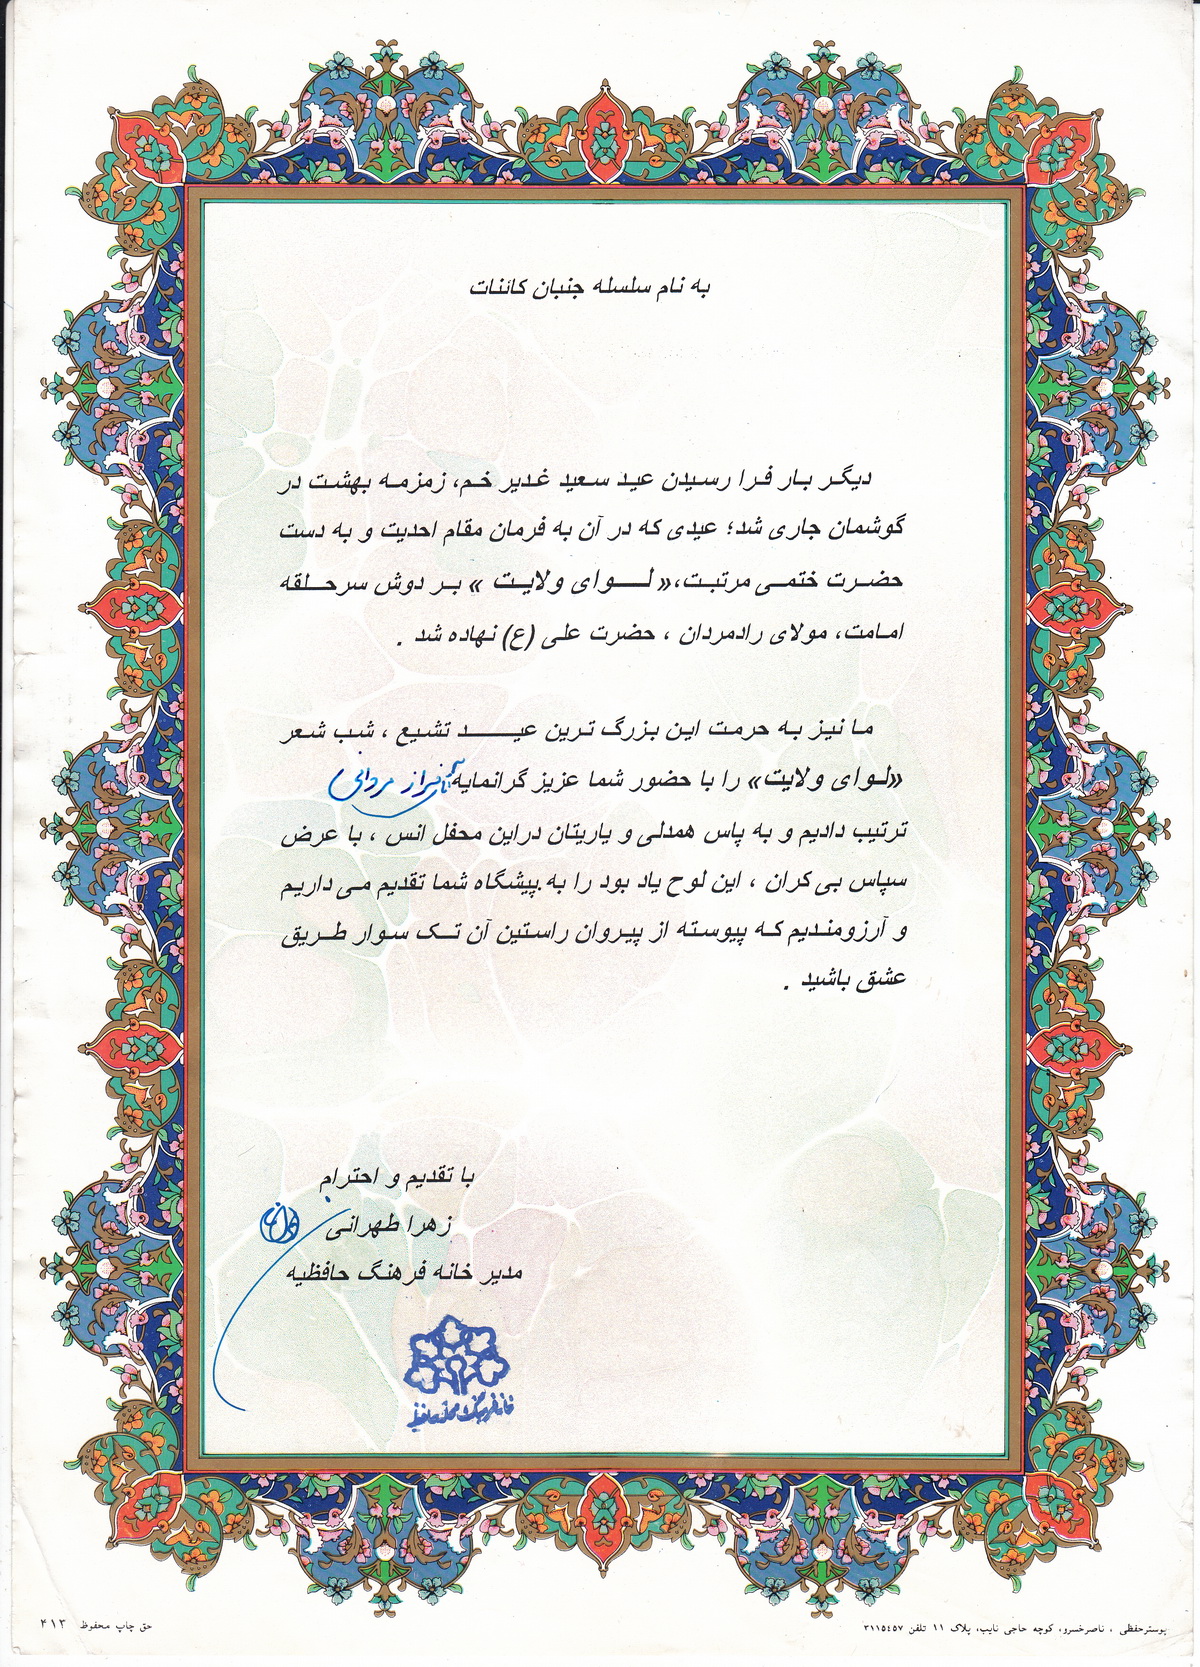 به نام سلسله جنبان کائنات
دیگر بار فرا رسیدن عید سعید غدیر خم، زمزمه بهشت در
گوشمان جاری شد؛ عیدی که در آن به فرمان مقام احدیت و به دست
حضرت ختمی مرتبت،« لوای ولایت » بر دوش سرحلقه
امامت، مولای رادمردان ، حضرت علی (ع) نهاده شد .
ما نیز به حرمت این بزرگ ترین عید تشیع ، شب شعر
«لوای ولایت» را با حضور شما عزیز گرانمایه مردانی
ترتیب دادیم و به پاس همدلی و یاریتان دراین محفل انس ، با عرض
سپاس بی کران ، این لوح یاد بود را به پیشگاه شما تقدیم می داریم
و آرزومندیم که پیوسته از پیروان راستین آن تک سوار طریق
عشق باشید .
با تقدیم و احترام
زهرا طهرانی
مدیر خانه فرهنگ حافظیه
حق چاپ محفوظ ۴۱۳
پوسترحفظی ، ناصرخسرو، کوچه حاجی نایب، پلاک ۱۱ تلفن ۳۱۱۵٤۵۷